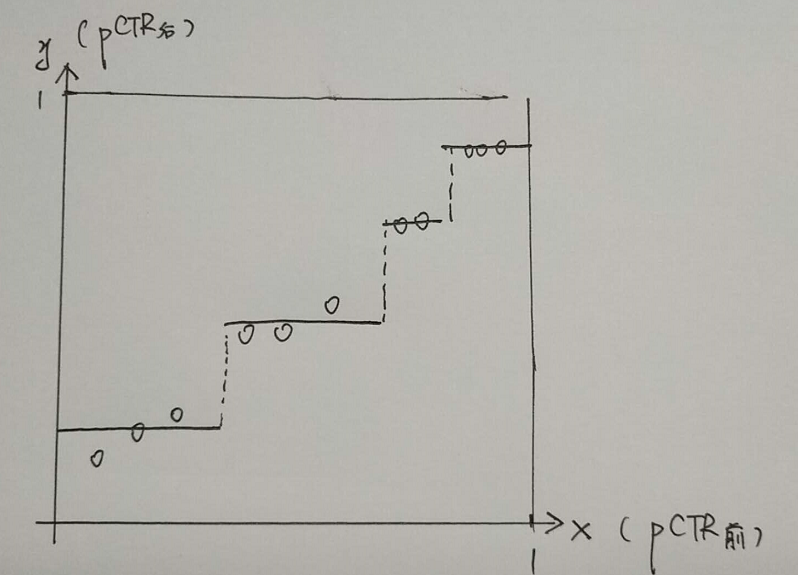 y (pCTR后)
1
x (pCTR前)
1